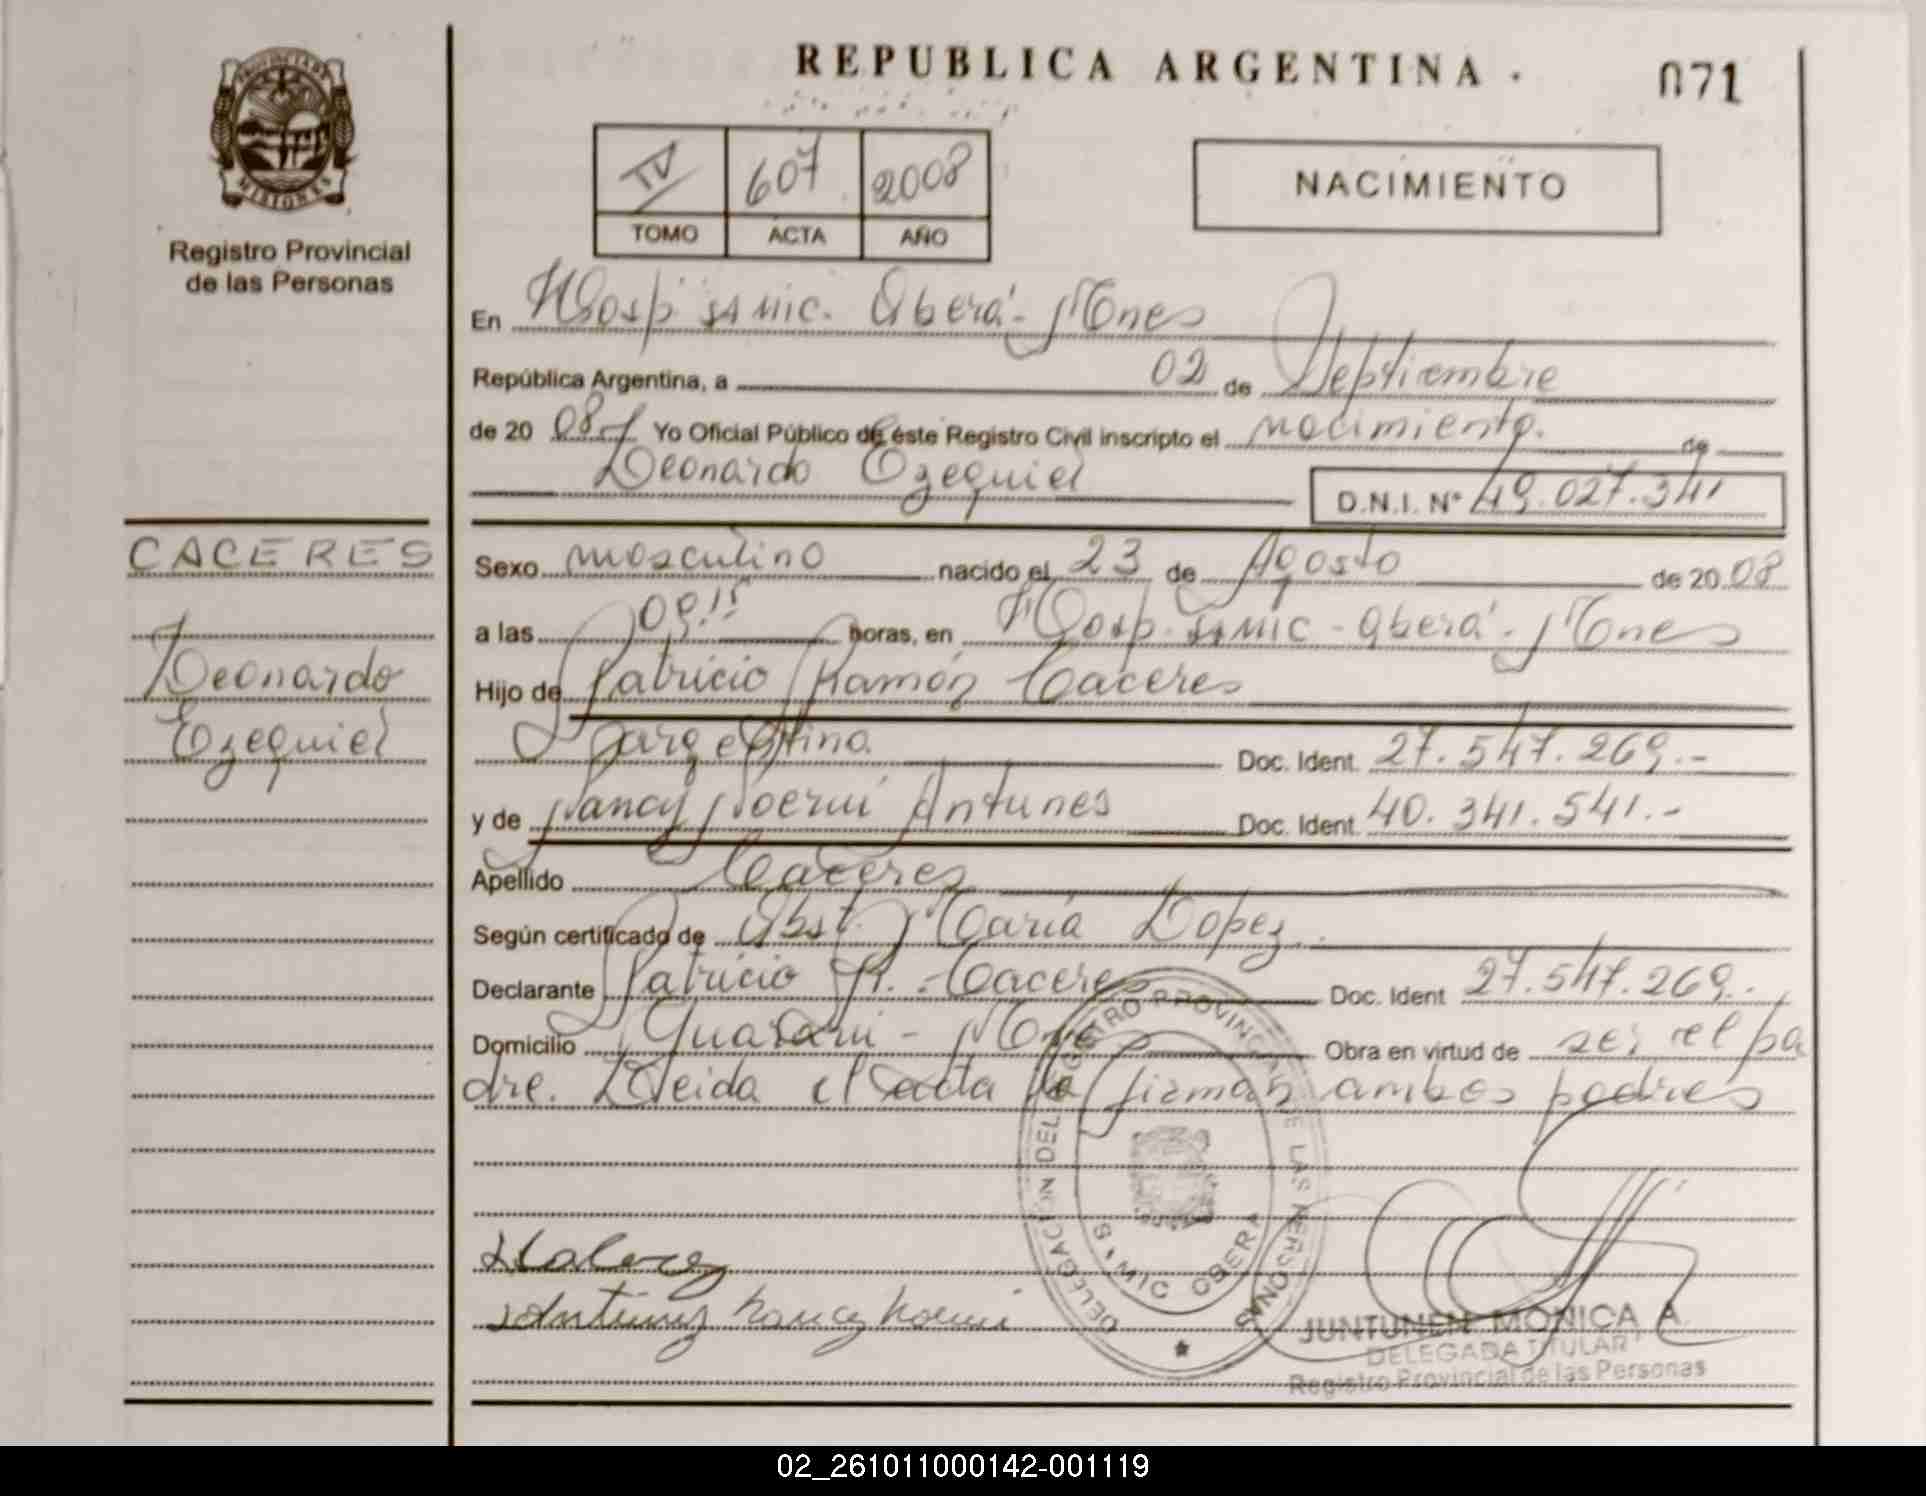 REPUBLICA ARGENTINA
071
PROVINCIA DE MISIONES
Registro Provincial
de las Personas
IV 607 2008
TOMO ACTA AÑO
NACIMIENTO
En Hosp. SAMIC. Oberá - Mnes
República Argentina, a 02 de Septiembre
de 20 08.- Yo Oficial Público de éste Registro Civil inscripto el nacimiento. de
Leonardo Ezequiel D.N.I. Nº 49.027.341
CACERES
Leonardo
Ezequiel
Sexo masculino nacido el 23 de Agosto de 20 08
a las 09:15 horas, en Hosp. SAMIC - Oberá - Mnes
Hijo de Patricio Ramón Caceres
argentino. Doc. Ident. 27.547.269.-
y de Nancy Noemí Antunes Doc. Ident. 40.341.541.-
Apellido Caceres
Según certificado de Obst. María Lopez.
Declarante Patricio R. Caceres Doc. Ident 27.547.269.
Domicilio Guaraní - Mnes Obra en virtud de ser el pa
dre. Leida el acta la firman ambos padres
Antunez Nancy Noemi
DELEGACION DEL REGISTRO PROVINCIAL DE LAS PERSONAS
S.A.MIC OBERA
JUNTUNEN MONICA A.
DELEGADA TITULAR
Registro Provincial de las Personas
02_261011000142-001119